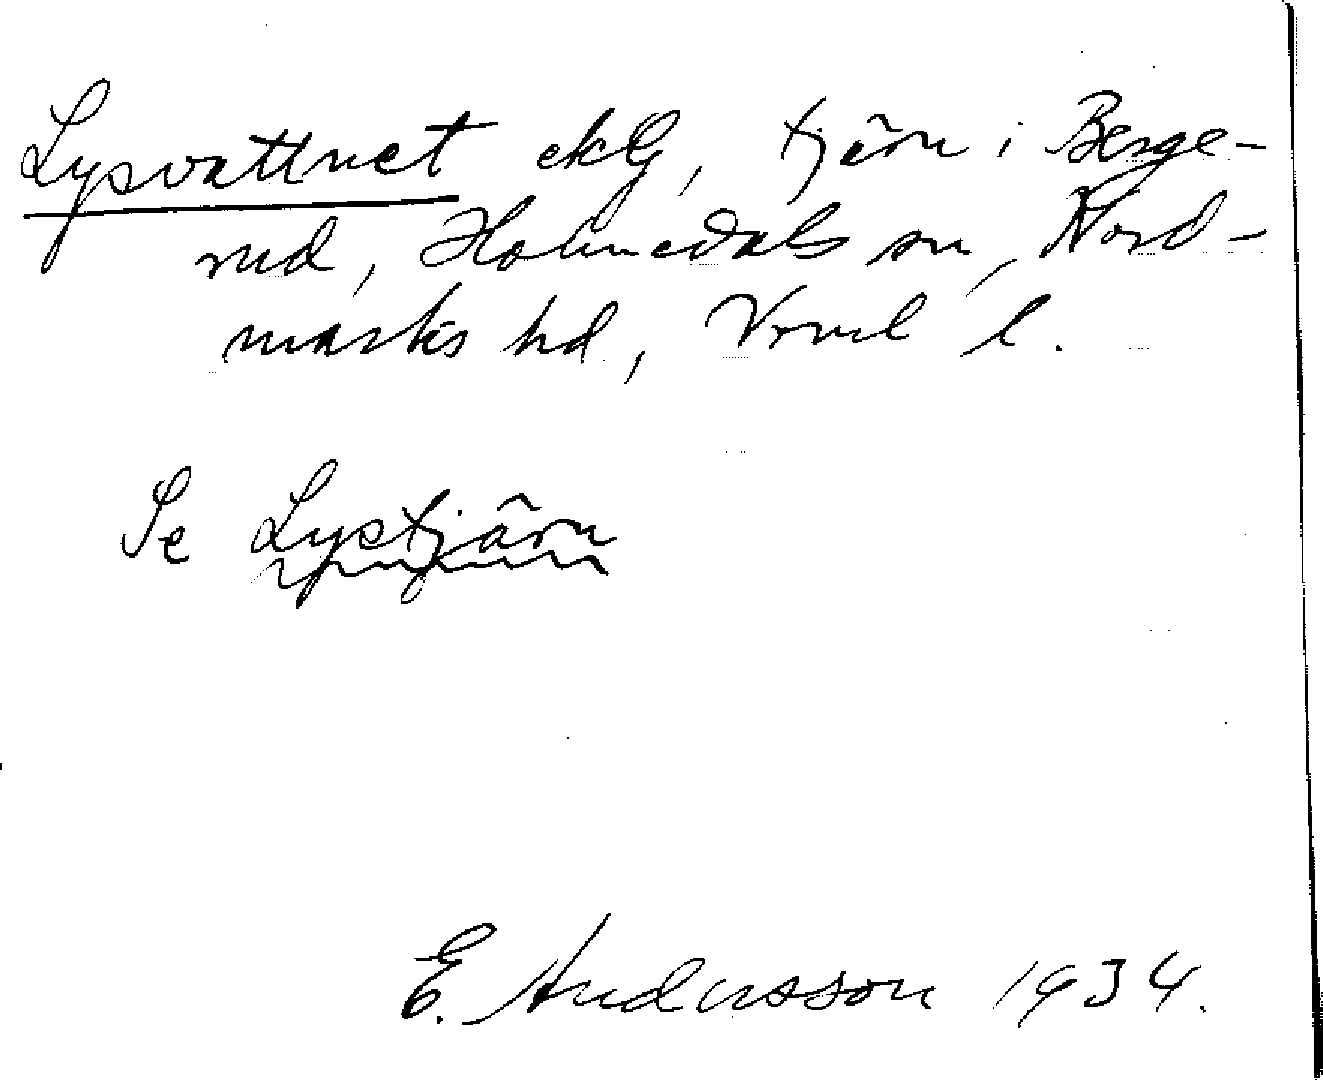 Lysvattnet ekG, tjärn i Berge-
rud, Holmedals sn, Nord-
marks hd, Vrml l.
Se Lystjärn
E. Andersson 1934.